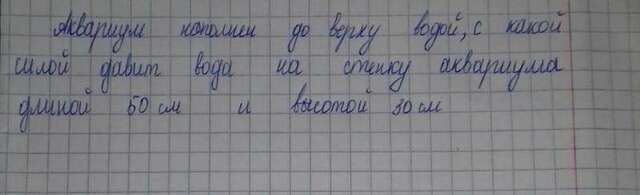 Аквариум наполнен до верху водой, с какой
силой давит вода на стенку аквариума
длиной 50 см и высотой 30 см